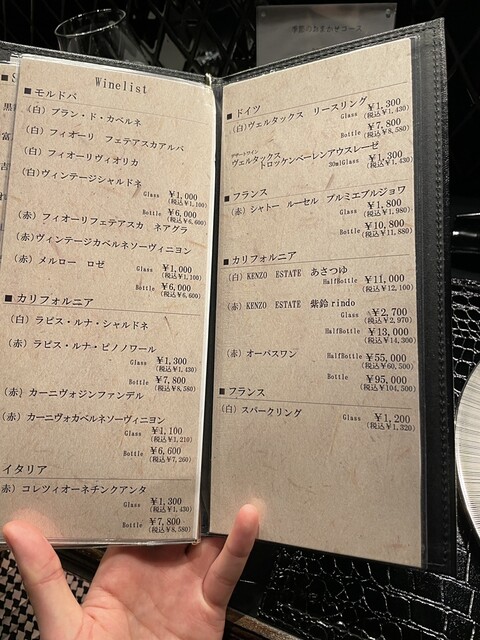 季節のおまかせコース
黒
富
吉
Winelist
■モルドバ
(白) ブラン・ド・カベルネ
(白) フィオーリ フェテアスカアルバ
(白) フィオーリヴィオリカ
(白) ヴィンテージシャルドネ
Glass ¥1,000
(税込¥1,100)
Bottle ¥6,000
(税込¥6,600)
(赤) フィオーリフェテアスカ ネアグラ
(赤)ヴィンテージカベルネソーヴィニヨン
(赤) メルロー ロゼ
Glass ¥1,000
(税込¥1,100)
Bottle ¥6,000
(税込¥6,600)
■カリフォルニア
(白) ラピス・ルナ・シャルドネ
(赤) ラピス・ルナ・ピノノワール
Glass ¥1,300
(税込¥1,430)
Bottle ¥7,800
(税込¥8,580)
(赤) カーニヴォジンファンデル
(赤) カーニヴォカベルネソーヴィニヨン
Glass ¥1,100
(税込¥1,210)
Bottle ¥6,600
(税込¥7,260)
イタリア
赤) コレツィオーネチンクアンタ
Glass ¥1,300
(税込¥1,430)
Bottle ¥7,800
(税込¥8,580)
■ドイツ
(白)ヴェルタックス リースリング
Glass ¥1,300
(税込¥1,430)
Bottle ¥7,800
(税込¥8,580)
デザートワイン
ヴェルタックス
トロッケンベーレンアウスレーゼ
30mlGlass ¥1,300
(税込¥1,430)
■フランス
(赤) シャトー ルーセル プルミエブルジョワ
Glass ¥1,800
(税込¥1,980)
Bottle ¥10,800
(税込¥11,880)
■カリフォルニア
(白) KENZO ESTATE あさつゆ
HalfBottle ¥11,000
(税込¥12,100)
(赤) KENZO ESTATE 紫鈴rindo
Glass ¥2,700
(税込¥2,970)
HalfBottle ¥13,000
(税込¥14,300)
(赤) オーパスワン HalfBottle ¥55,000
(税込¥60,500)
Bottle ¥95,000
(税込¥104,500)
■フランス
(白) スパークリング
Glass ¥1,200
(税込¥1,320)